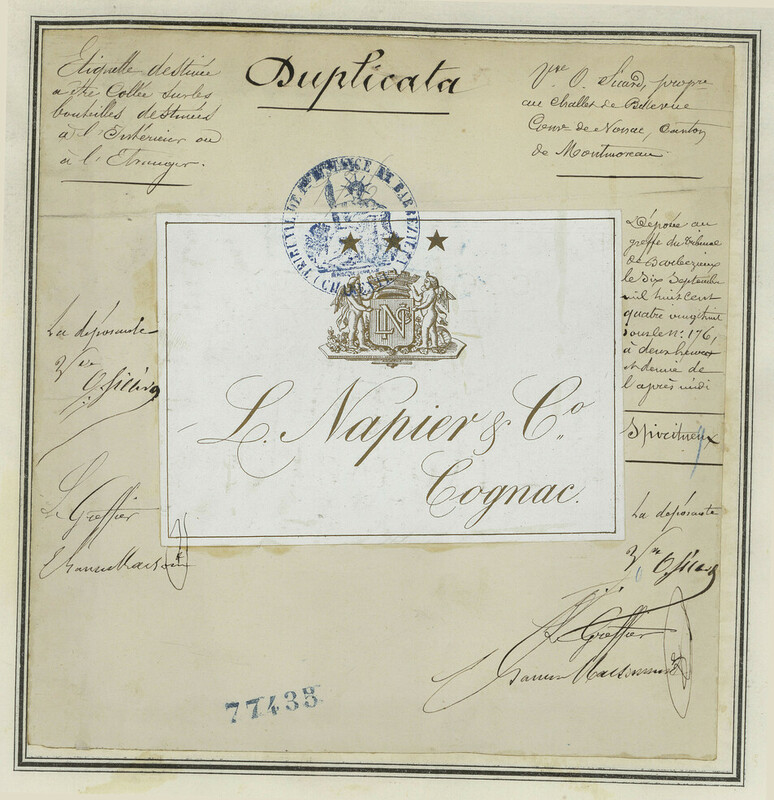 Duplicata
Etiquette destinée
a être Collée sur les
bouteilles destinées
à l'Intérieur ou
à l'Etranger.
Vve O. Sicard, propre
au challet de Bellevue
Comne de Nonac, Canton
de Montmoreau
TRIBUNAL DE 1ERE INSTANCE DE BARBEZIEUX
(CHARENTE)
LN
L. Napier & Co
Cognac.
Déposée au
greffe du Tribunal
de Barbezieux
le six Septembre
mil huit cent
quatre vingt huit
sous le No. 176,
à deux heures
et demie de
l'après midi
Spiritueux
La déposante
Vve O. Sicard
Le Greffier
La déposante
Vve O. Sicard
Le Greffier
77433